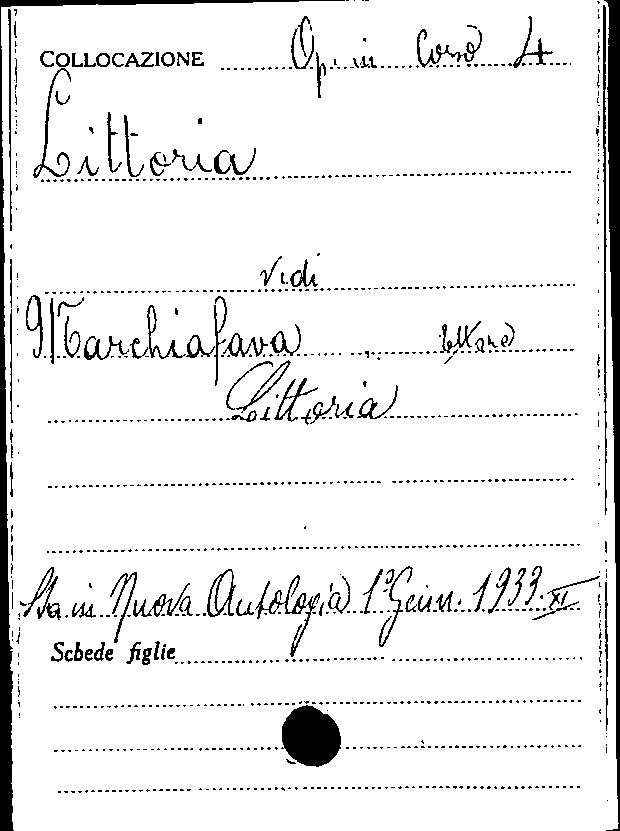 COLLOCAZIONE Op. in Corso 4
Littoria
Vidi
Marchiafava Ettore
Littoria
Sta in Nuova Antologia 1° Genn. 1933. XI
Schede figlie